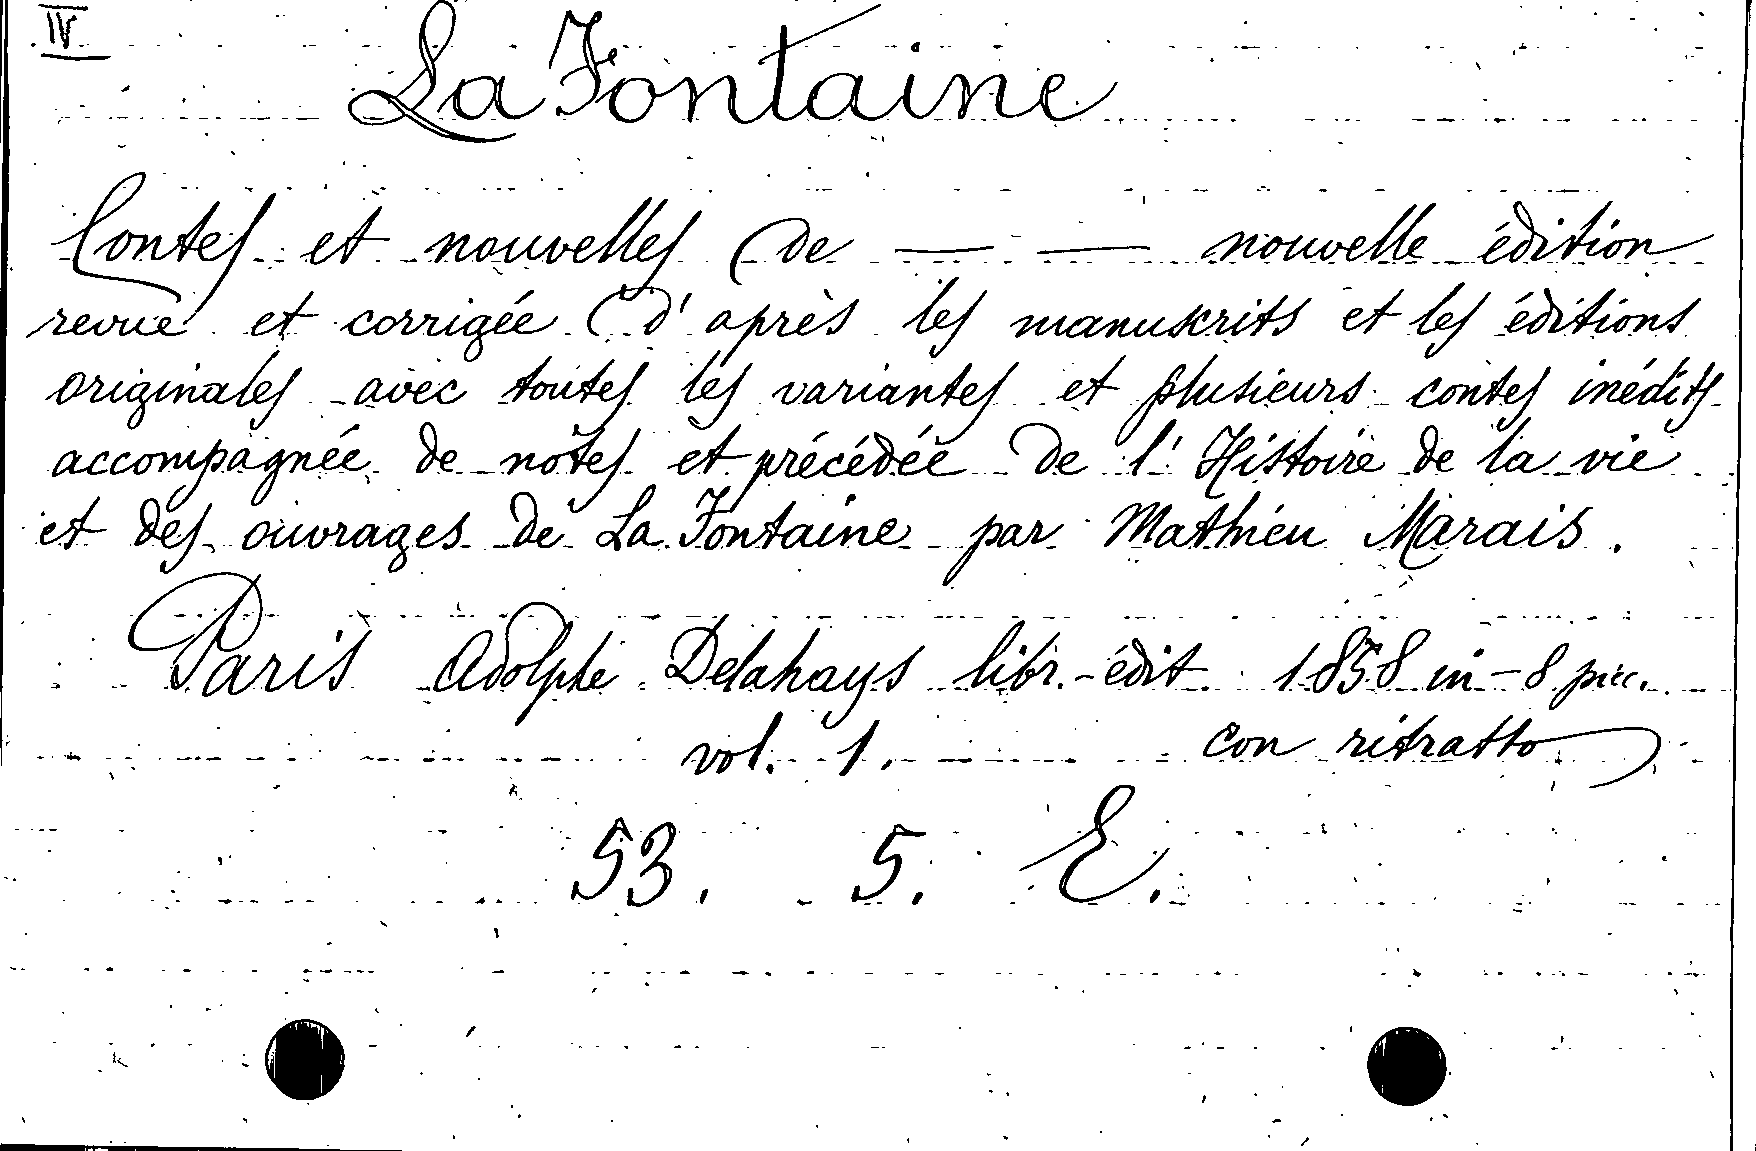 IV
La Fontaine
Contes et nouvelles de — — nouvelle édition
revue et corrigée d'après les manuscrits et les éditions
originales avec toutes les variantes et plusieurs contes inédits
accompagnée de nôtes et précédée de l'Histoire de la vie
et des ouvrages de La Fontaine par Mathieu Marais.
Paris Adolphe Delahays libr.-édit 1858 in-8 picc.
vol. 1. con ritratto
53. 5. E.